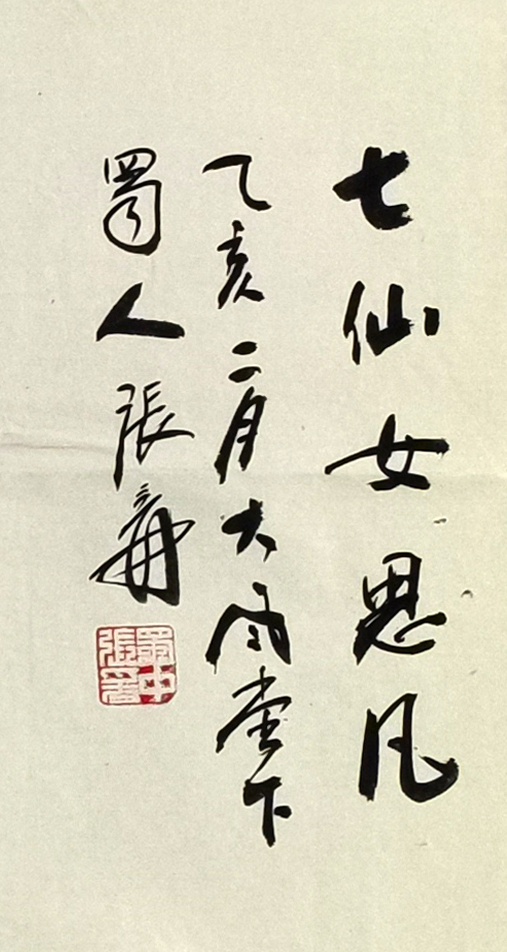 七仙女思凡
乙亥二月大風堂下
蜀人張
蜀中張